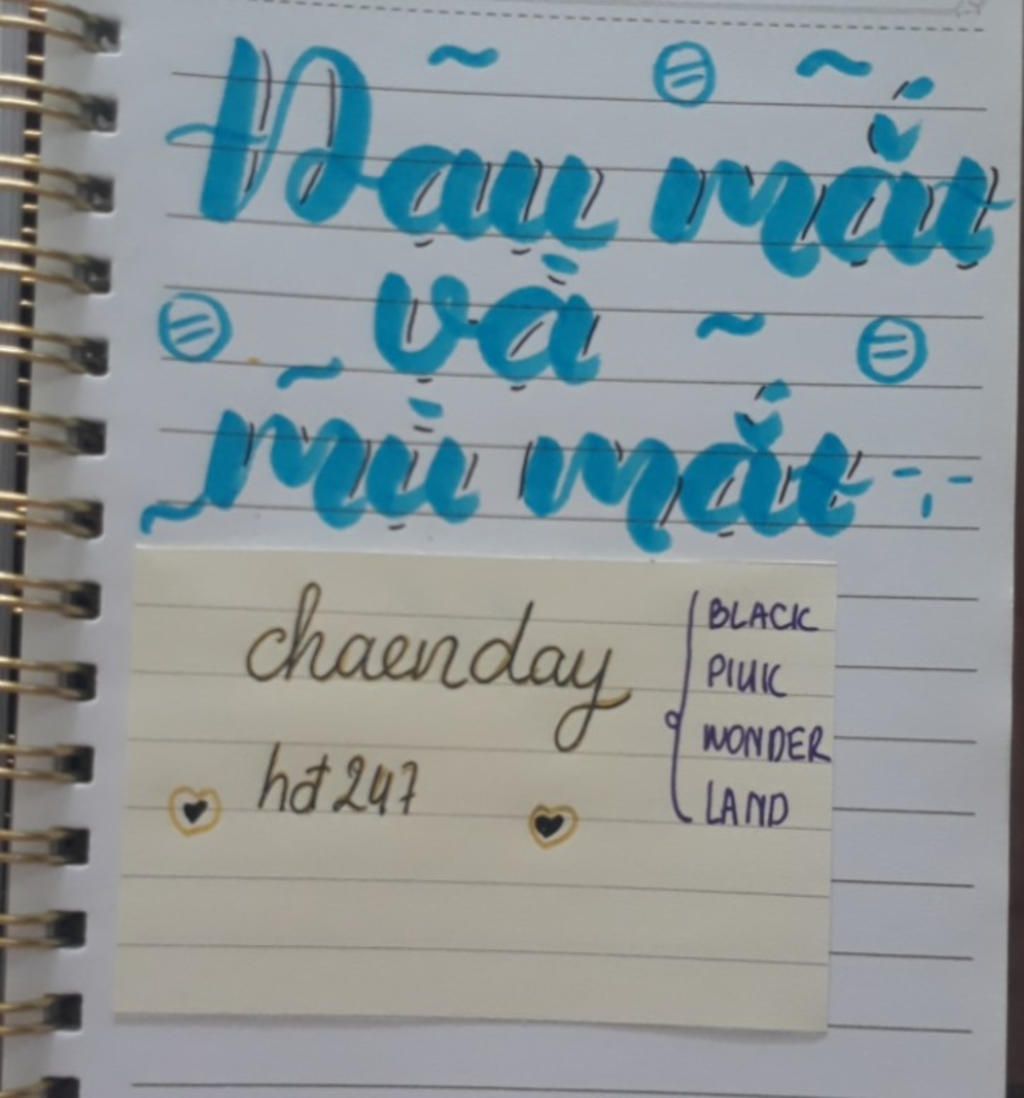 Đau mắt
và
mù mắt
chaenday
hđ 247
BLACK
PINK
WONDER
LAND